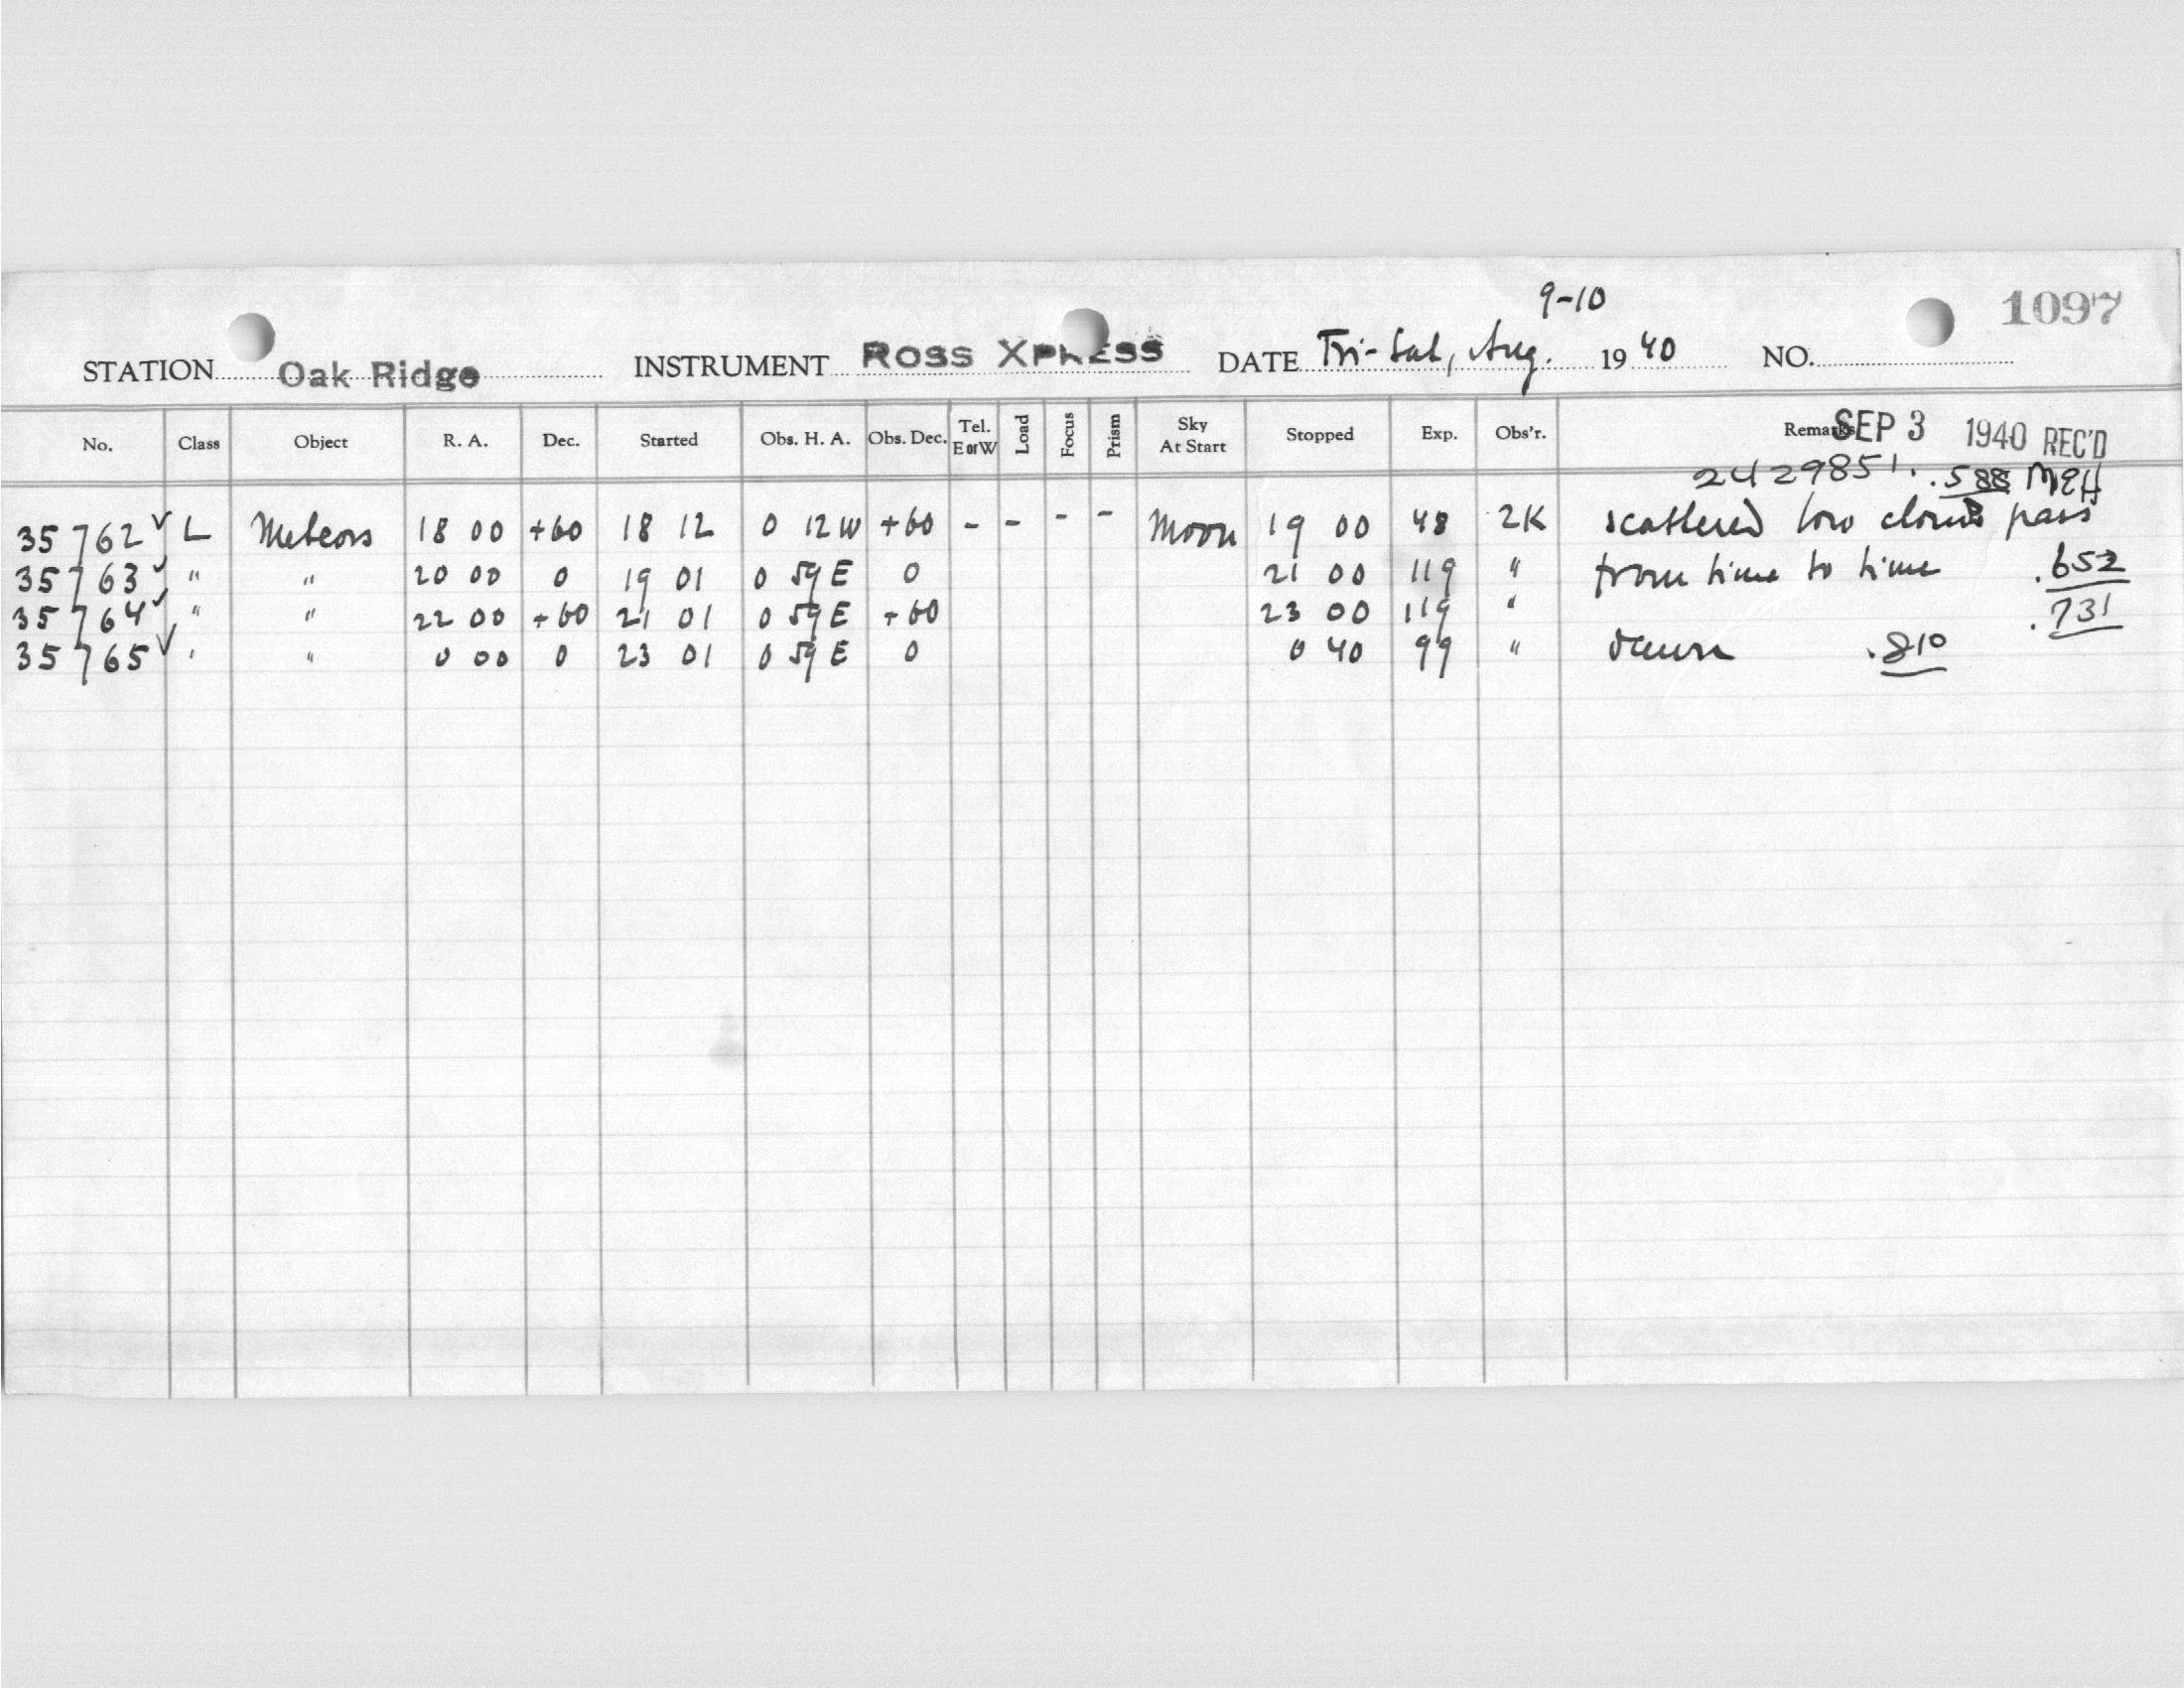 9-10
1097
STATION Oak Ridge INSTRUMENT ROSS XPRESS DATE Fri-Sat, Aug. 1940 NO.
No. Class Object R. A. Dec. Started Obs. H. A. Obs. Dec. Tel. E or W Load Focus Prism Sky At Start Stopped Exp. Obs'r. Remarks SEP 3 1940 REC'D
2429851. .588 MEH
35762 ✓ L Meteors 18 00 +60 18 12 0 12W +60 - - - - Moon 19 00 48 2K scattered low clouds pass
35763 ✓ " " 20 00 0 19 01 0 59E 0 21 00 119 " from time to time .652
35764 ✓ " " 22 00 +60 21 01 0 59E +60 23 00 119 " .731
35765 ✓ " " 0 00 0 23 01 0 59E 0 0 40 99 " dawn .810